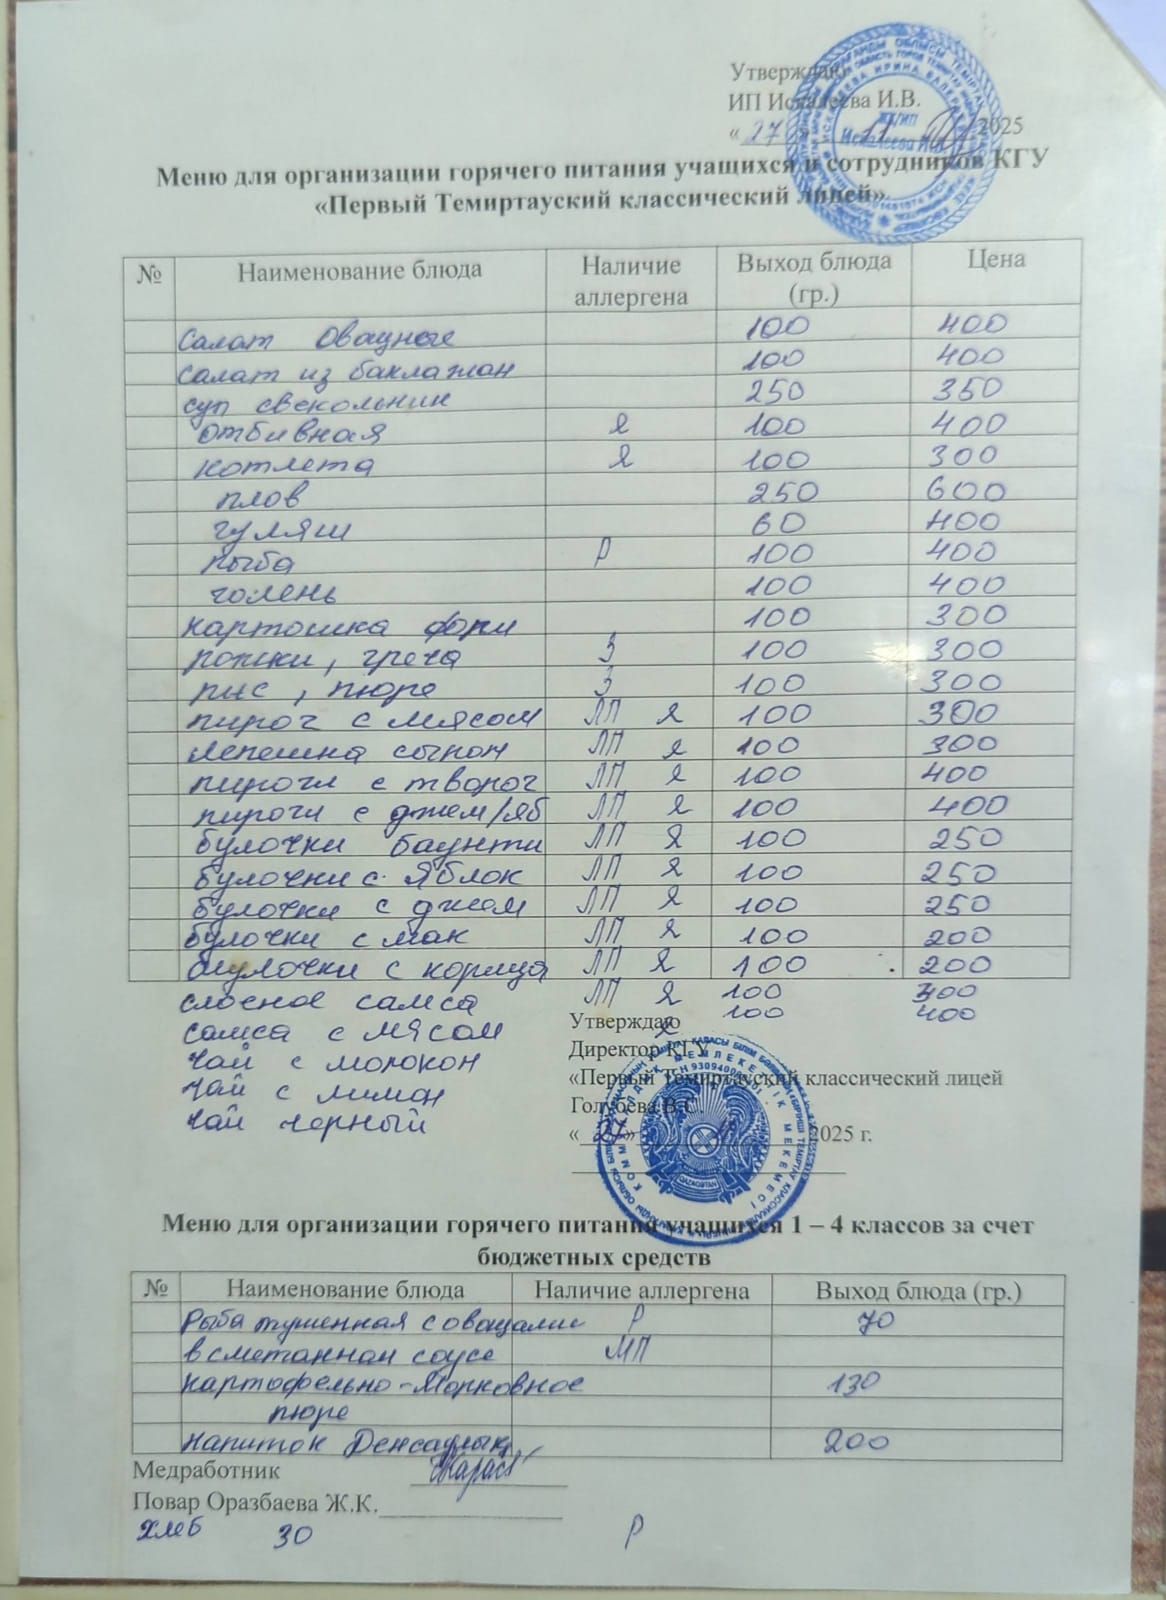 Утверждаю
ИП Искалеева И.В.
« 27 » 11 2025
Меню для организации горячего питания учащихся и сотрудников КГУ
«Первый Темиртауский классический лицей»
№ Наименование блюда Наличие аллергена Выход блюда (гр.) Цена
Салат Овощные 100 400
Салат из баклажан 100 400
суп свекольник 250 350
отбивная Я 100 400
котлета Я 100 300
плов 250 600
гуляш 60 400
рыба Р 100 400
голень 100 400
картошка фри 100 300
рожки, греча З 100 300
рис, пюре З 100 300
пирог с мясом ЛП Я 100 300
лепешка сыром ЛП Я 100 300
пироги с творог ЛП Я 100 400
пироги с джем/яб ЛП Я 100 400
булочки баунти ЛП Я 100 250
булочки с Яблок ЛП Я 100 250
булочки с джем ЛП Я 100 250
булочки с мак ЛП Я 100 200
булочки с корица ЛП Я 100 200
слоеное самса ЛП Я 100 400
самса с мясом Я 100 400
чай с молоком
чай с лимон
чай черный
Утверждаю
Директор КГУ
«Первый Темиртауский классический лицей
Голубева В.С.
« 27 » 2025 г.
Меню для организации горячего питания учащихся 1 – 4 классов за счет
бюджетных средств
№ Наименование блюда Наличие аллергена Выход блюда (гр.)
Рыба тушенная с овощами Р 70
в сметанном соусе МП
картофельно-Морковное 130
пюре
напиток Денсаулық 200
Медработник
Повар Оразбаева Ж.К.
хлеб 30 Р